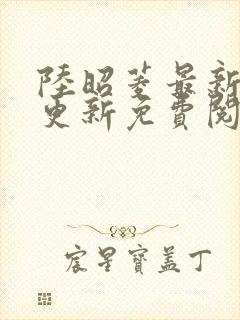 陸昭菱最新
更新免費閱
宸星寶蓋丁